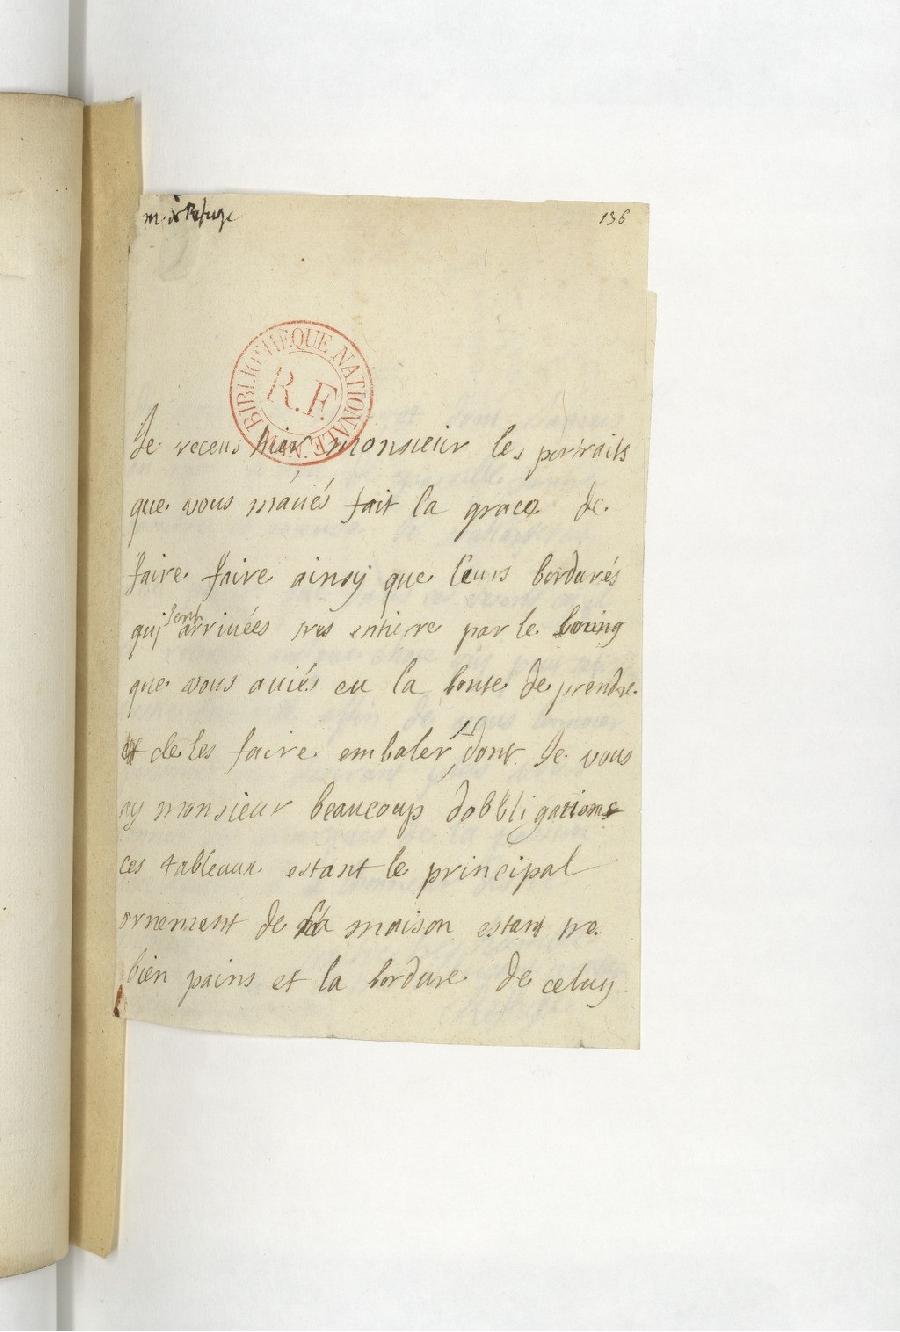 m. de Refuge
136
BIBLIOTHEQUE NATIONALE MSS
R.F.
Je receus hier monsieur les portraits
que vous mavés fait la grace de
faire faire ainsy que leurs bordurés
quj sont arrivées tres entierre par le soing
que vous aviés eu la bonte de prendre
et de les faire embaler, dont Je vous
ay monsieur beaucoup dobbligations
ces tableaux estant le principal
ornement de la maison estant tre
bien pains et la bordure de celuy